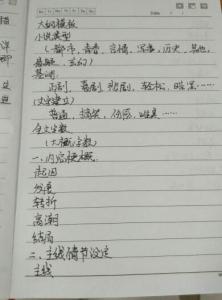 大纲模板
小说类型
(都市、青春、言情、军事、历史、其他、
悬疑、玄幻)
基调
正剧、喜剧、悲剧、轻松、暗黑……
(文章建立)
普通、搞笑、伤感、暗黑……
全文字数
(大概字数)
一、内容梗概
起因
发展
转折
高潮
结局
二、主线情节设定
主线